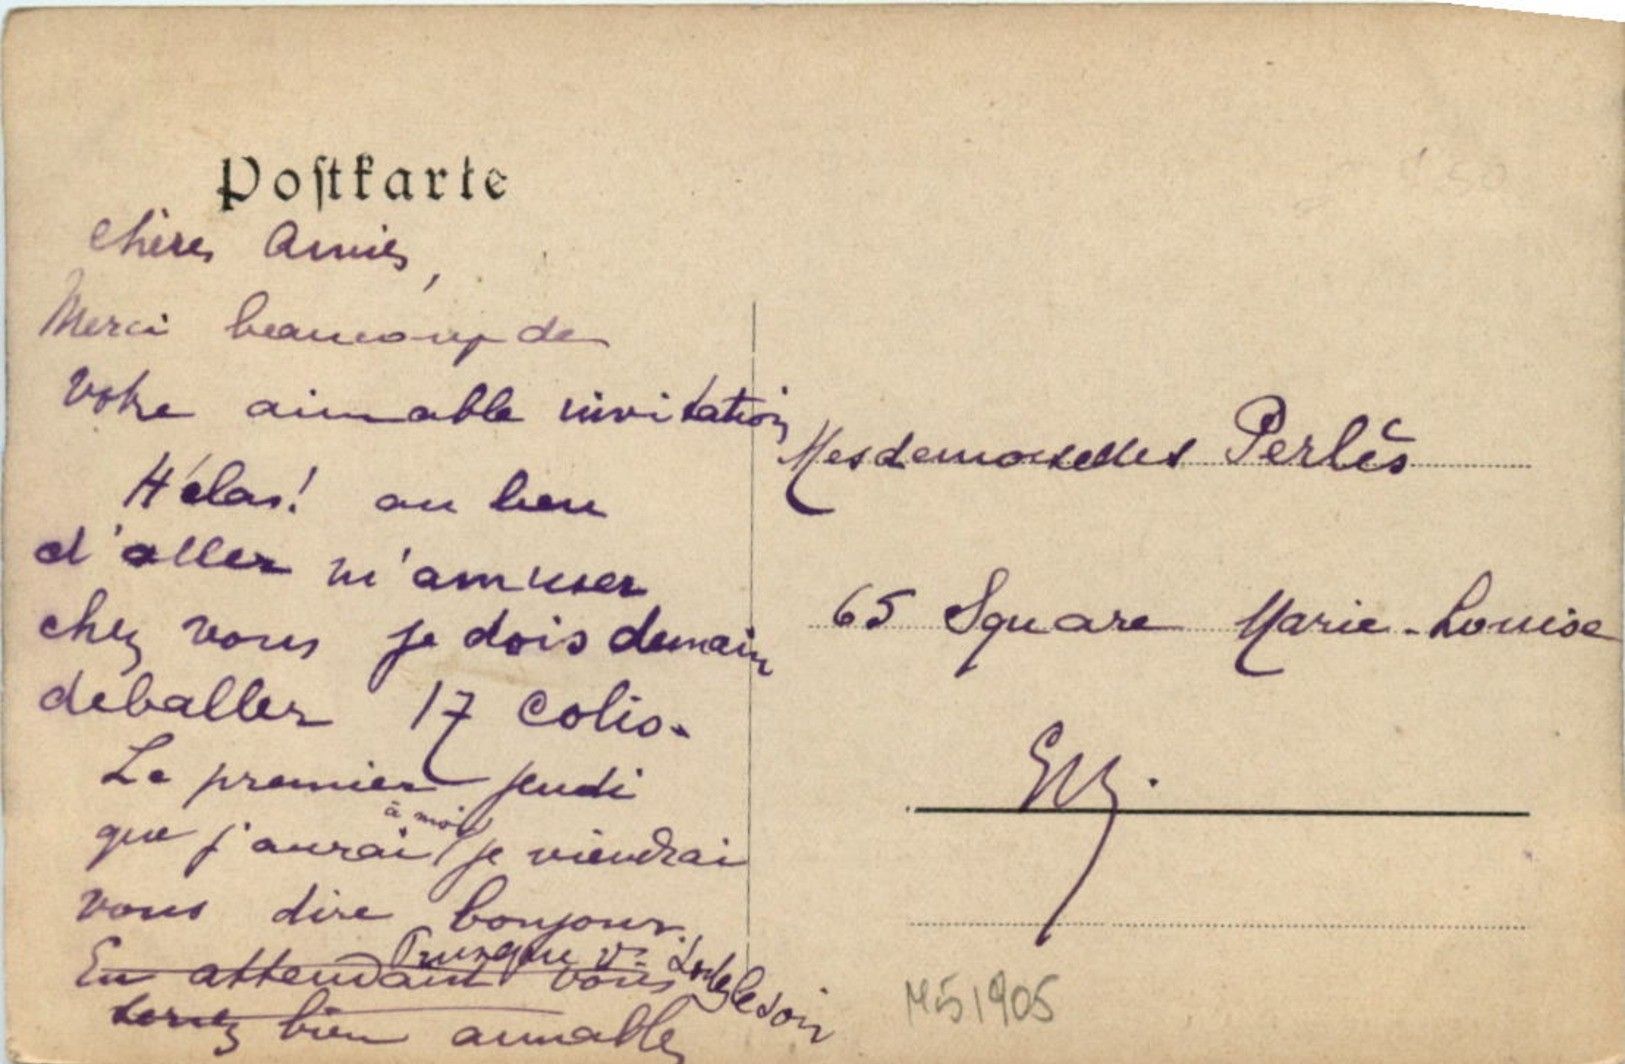 Postkarte
Chères Amies,
Merci beaucoup de
votre aimable invitation
Hélas! au lieu
d'aller m'amuser
chez vous je dois demain
déballer 17 colis.
Le premier jeudi
que j'aurai à moi je viendrai
vous dire bonjour.
En attendant vous
serez bien aimables
Mesdemoiselles Perlès
65 Square Marie-Louise
E/V.
M51905